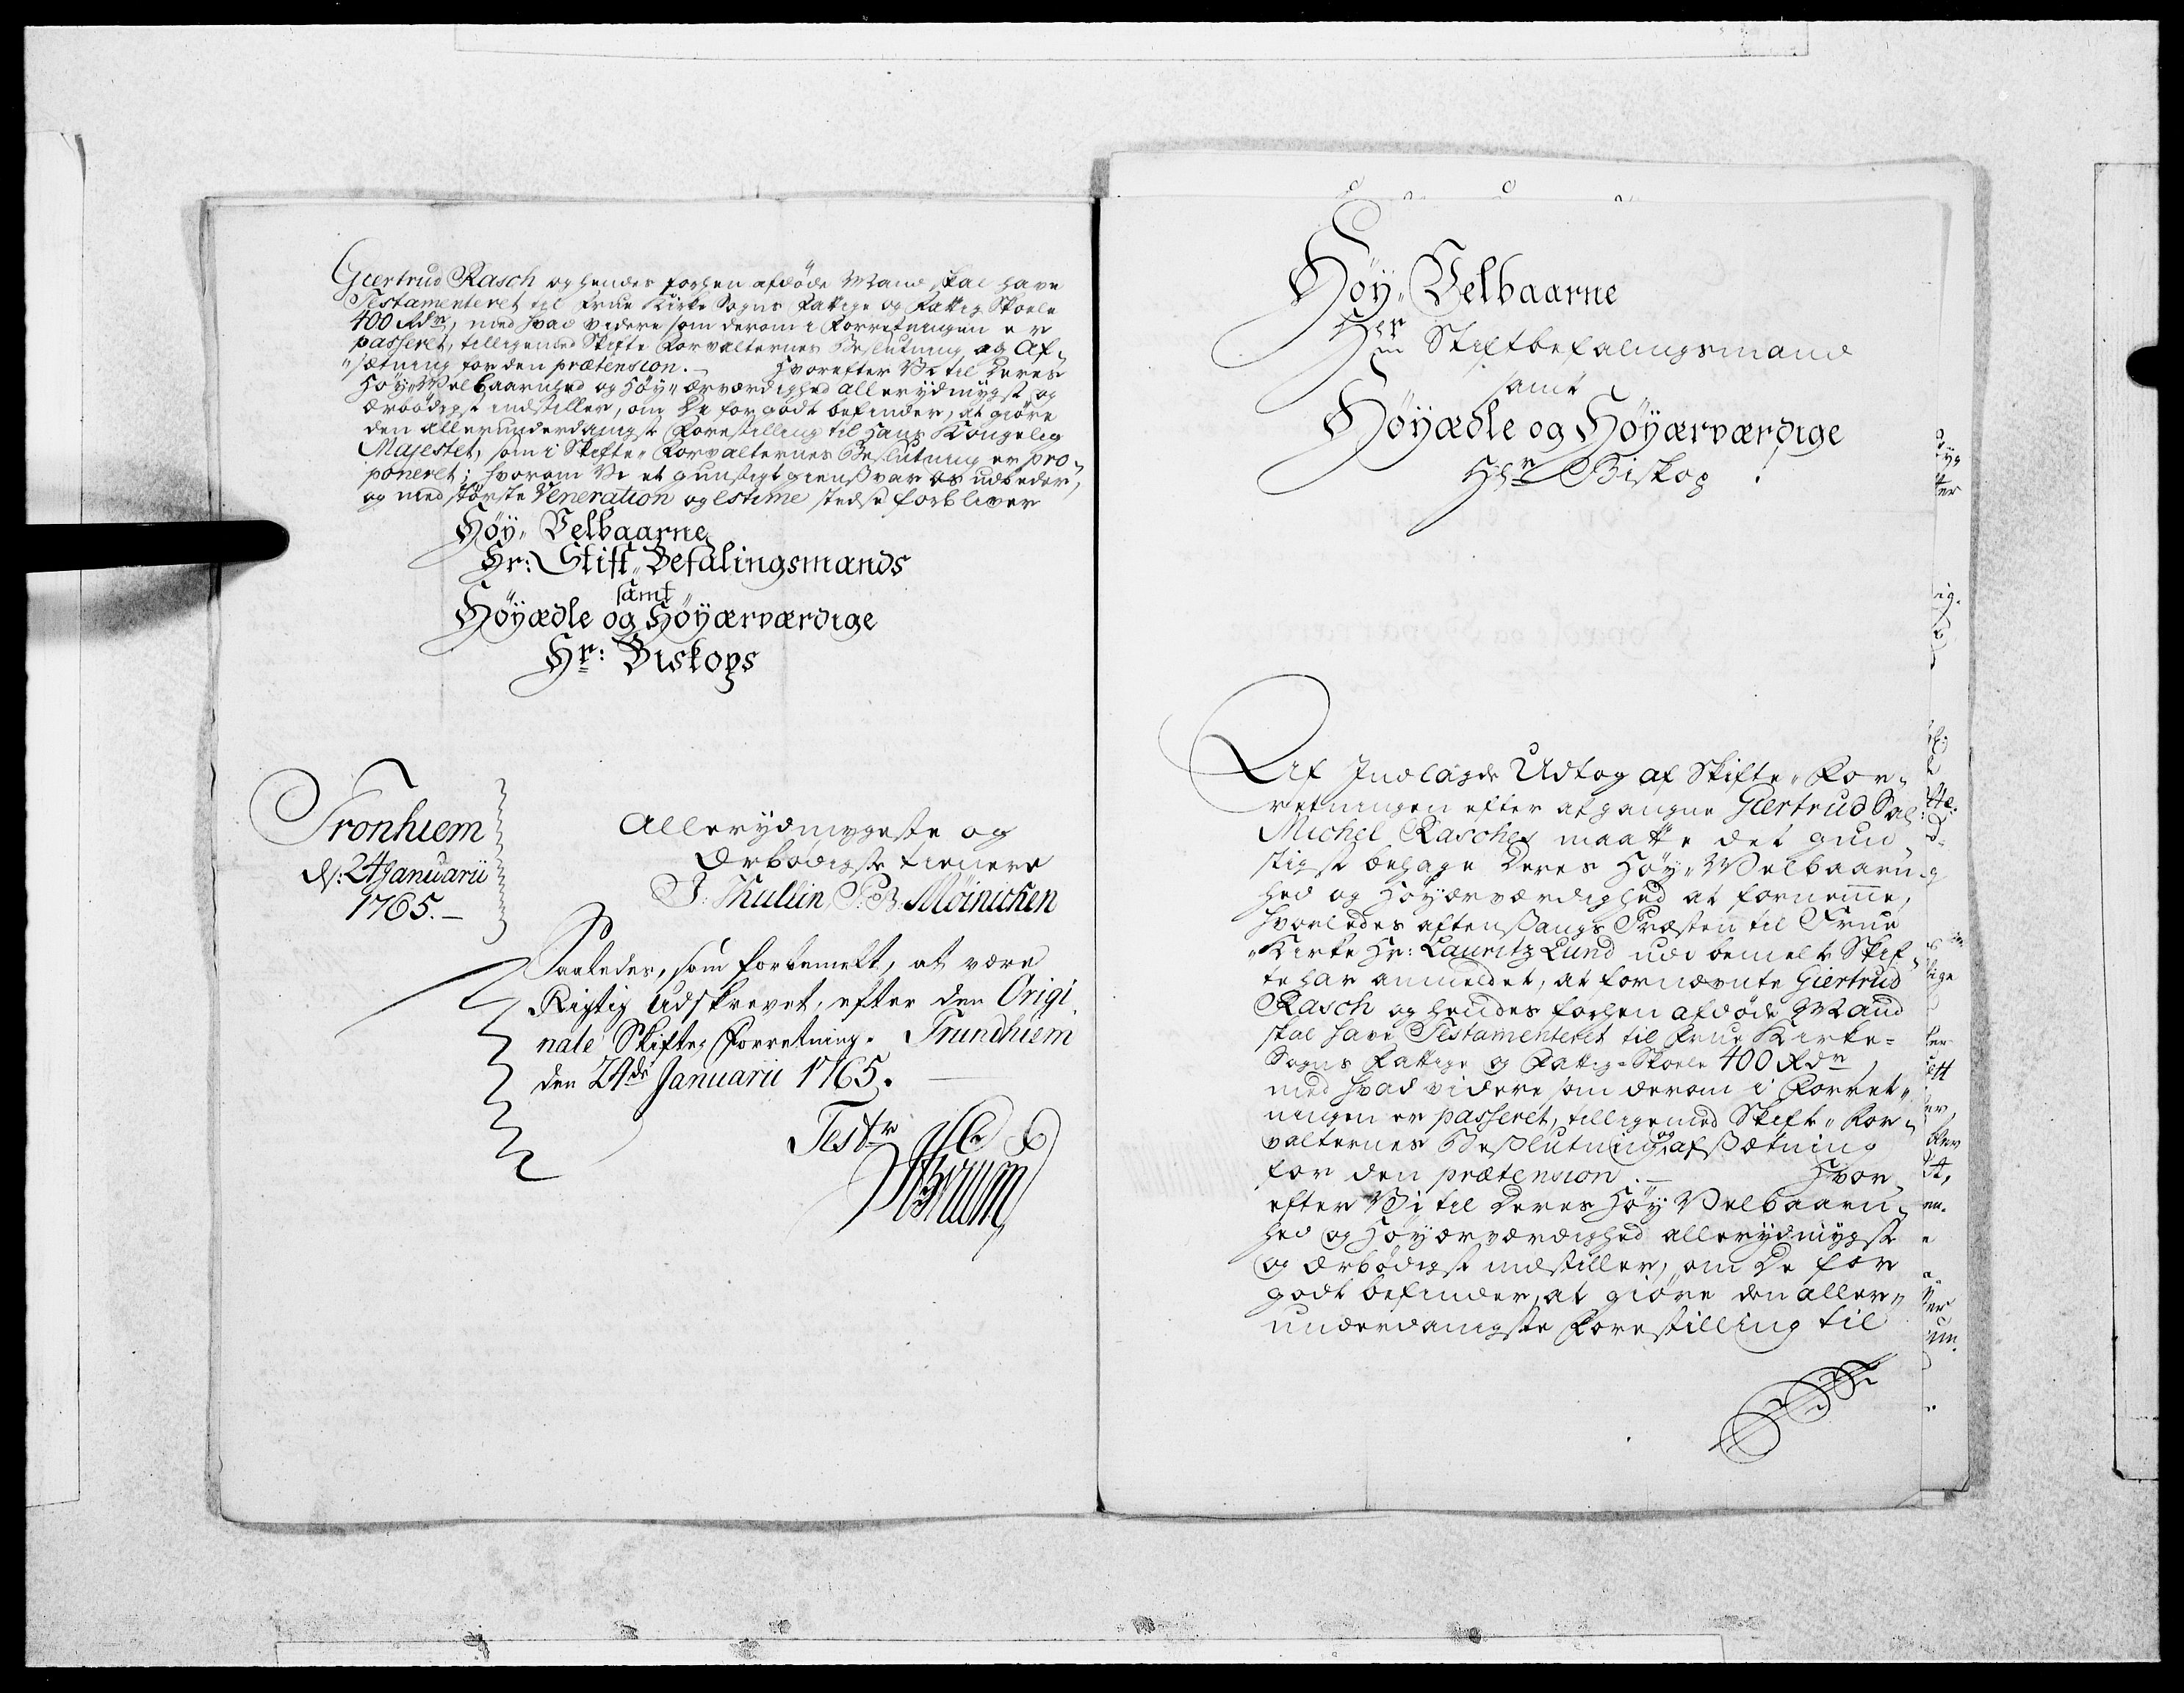 Giertrud Rasch og hendes forhen afdøde Mand skal have
Testamenteret til Frue Kirke Sogns Fattige og Fattig Skoele
400 Rdr, med hvad videre som derom i Forretningen er
passeret, tilligemed Skifte Forvalternes Beslutning og Af-
"sætning for den prætension. – Hvorefter Vi til Deres
Høy" Velbaarnhed og Høy" ærværdighed allerydmygst og
Ærbødigst indstiller, om De for godt befinder, at giøre
den allerunderdanigst Forestilling til Hans Kongelig
Majestet, som i Skifte" Forvalternes Beslutning er pro-
poneret; hvorom Vi et gunstigt giensvar os udbeder,
og med største Veneration og estime stedse forbliver
Høy" Velbaarne
Hr: Stift" Befalingsmands
samt
Høyædle og Høyærværdige
Hr: Biskops
Tronhiem
d: 24 Januarii
1765. –
Allerydmygeste og
Ærbødigste tienere
J: Thullin P: B: Möinichen
Saaledes, som forbemelt, at være
Rigtig Udskrevet, efter den Origi
nale Skifte, Forretning. Trundhiem
den 24de Januarii 1765.
Test
Høy" Velbaarne
Herr Stiftbefalingsmand
samt
Høyædle og Høyærværdige
Hr Biskop!
Af Indlagde Udtog af Skifte" For-
retningen efter afgangne Giertrud Sal:
Michel Rasches maatte det gun-
stigst behage Deres Høy" Velbaarn-
hed og Høyærværdighed at fornemme,
hvorledes aftensangs Præsten til Frue
"Kirke Hr: Lauritz Lund udi bemelte Skif-
te har anmeldet, at fornævnte Giertrud
Rasch og hendes forhen afdøde Mand
skal have Testamenteret til Frue Kirke-
Sogns Fattige og Fattig-Skoele 400 Rdr,
med hvad videre som derom i Forret"
ningen er passeret, tilligemed Skifte" For-
valternes Beslutning og afsætning
for den prætension. – Hvor-
efter Vi til Deres Høy Velbaarn-
hed og Høyærværdighed allerydmygst
og Ærbødigst indstiller, om De for
godt befinder, at giøre den aller"
underdanigste Forestilling til